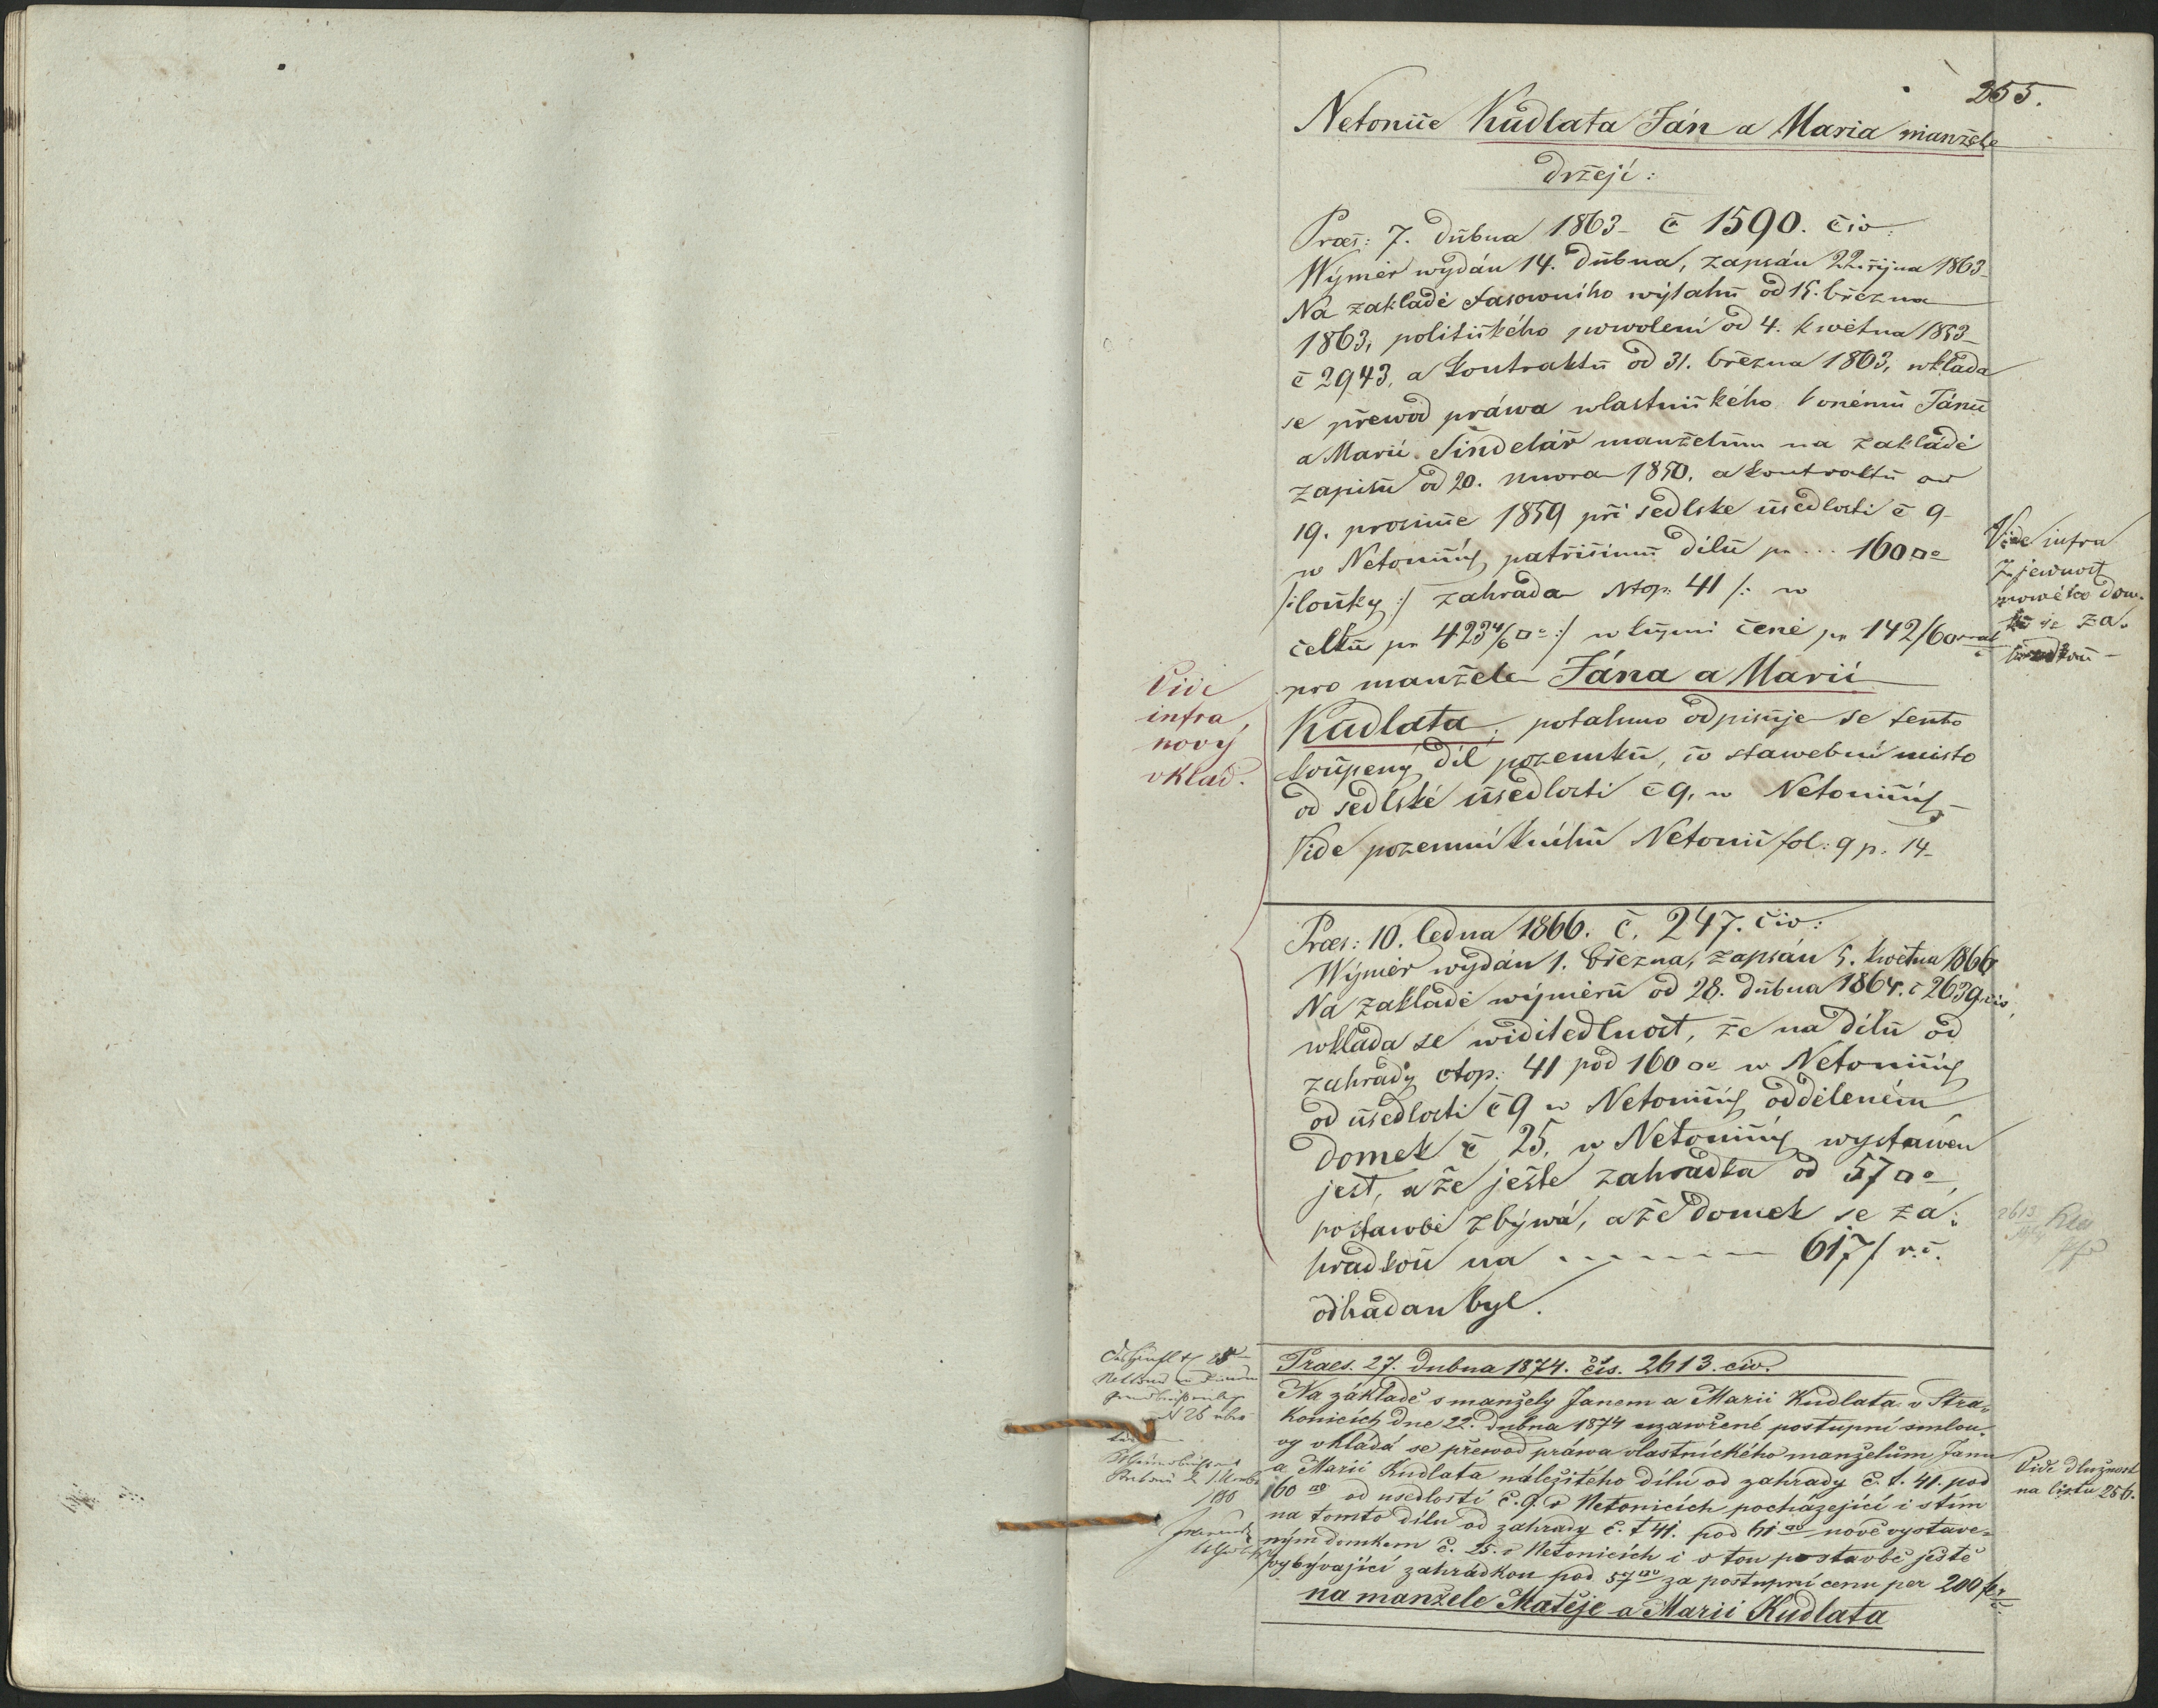 255.
Netonice Kudlata Ján a Maria manžele
drželi:
Praes: 7. dubna 1863 č 1590. civ:
Wýměr wydán 14. dubna, zapsán 22 října 1863
Na základě stasowního wýtahu od 15. března
1863, politického powolení od 4. května 1853
č 2943, a kontraktu od 31. března 1863, wkládá
se přewod práwa wlastnického Janu
a Marii Šindelář manželům na základě
zapisu od 20. unora 1850. a kontraktu od
19. prosince 1859 při sedlske usedlosti č 9
w Netonicích patřicimu dílu pr ... 160 □°
/: louky :/ zahrada Ntop: 41 /: w
celku pr 423 4/6 □° :/ w kupni ceně pr 142/60
pro manžele Jána a Marii
Kudlata, potahmo odpisuje se tento
koupený díl pozemku, co stawebni misto
od sedlské usedlosti č 9, w Netonicích
Vide pozemní knihu Netonic fol: 9 p. 14
Vide infra
Zjewnost
nowého dom-
ku se za-
hradkou
Vide
infra,
nový
vklad.
Praes: 10. ledna 1866. č. 247. civ:
Wýměr wydán 1. března, zapsán 5. května 1866
Na základě wýměru od 28. dubna 1864. č 2639 civ,
wkláda se widitedlnost, že na dílu od
zahrady čtop: 41 pod 160 □° w Netonicích
od usedlosti č 9 w Netonicích odděleném
domek č 25, w Netonicích wystawen
jest, a že ještě zahradka od 57 □°
po stawbě zbýwá, a že domek se za-
hradkou na 617 f r.č.
odhadan byl.
Praes. 27. dubna 1874. čís. 2613. civ.
Na základě s manžely Janem a Marii Kudlata v Stra-
konicích dne 22. dubna 1874 uzawřené postupní smlou-
vy vkládá se přewod práwa vlastnického manželům Janu
a Marii Kudlata náležitého dílu od zahrady č. t. 41. pod
160 □° od usedlosti č. 9. v Netonicích pocházející i s tím
na tomto dílu od zahrady č. t 41. pod 61 □° nově vystave-
ným domkem č. 25. v Netonicích i s tou po stavbě ještě
vybývající zahrádkou pod 57 □° za postupní cenu per 200 f
na manžele Matěje a Marii Kudlata
Vide dlužnost
na listu 256.